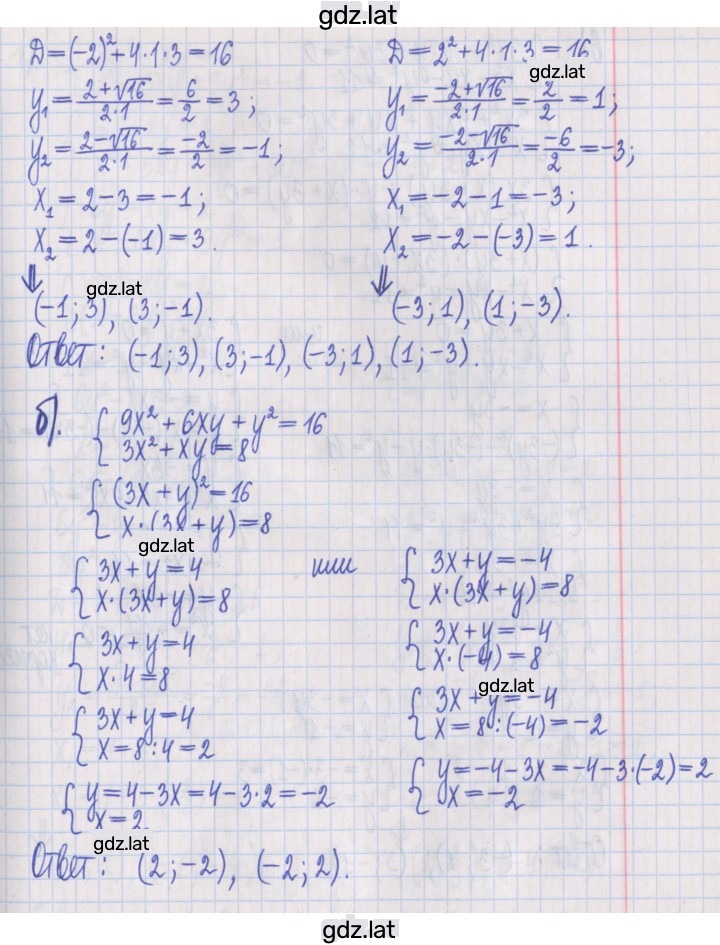 gdz.lat
D=(-2)²+4·1·3=16
y₁=(2+√16)/(2·1)=6/2=3;
y₂=(2-√16)/(2·1)=-2/2=-1;
x₁=2-3=-1;
x₂=2-(-1)=3.
⇓
gdz.lat
(-1;3), (3;-1).
D=2²+4·1·3=16
gdz.lat
y₁=(-2+√16)/(2·1)=2/2=1;
y₂=(-2-√16)/(2·1)=-6/2=-3;
x₁=-2-1=-3;
x₂=-2-(-3)=1.
⇓
(-3;1), (1;-3).
Ответ: (-1;3), (3;-1), (-3;1), (1;-3).
б). { 9x²+6xy+y²=16
3x²+xy=8
{ (3x+y)²=16
x·(3x+y)=8
gdz.lat
{ 3x+y=4
x·(3x+y)=8
{ 3x+y=4
x·4=8
{ 3x+y=4
x=8:4=2
{ y=4-3x=4-3·2=-2
x=2
или
{ 3x+y=-4
x·(3x+y)=8
{ 3x+y=-4
x·(-4)=8
gdz.lat
{ 3x+y=-4
x=8:(-4)=-2
{ y=-4-3x=-4-3·(-2)=2
x=-2
gdz.lat
Ответ: (2;-2), (-2;2).
gdz.lat